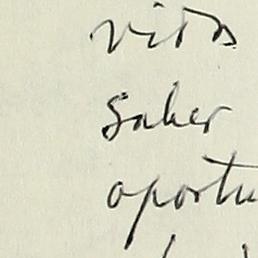 vida
saber
oportu